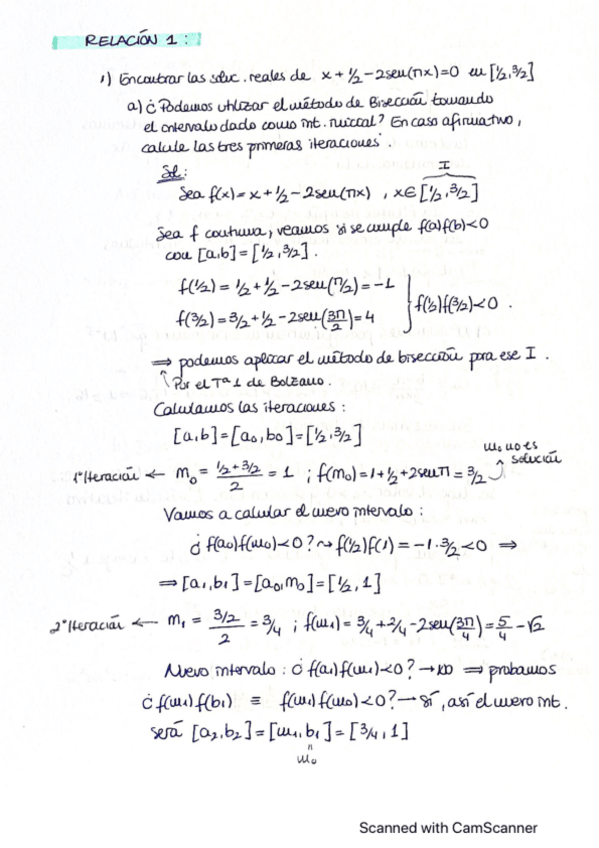 RELACIÓN 1:
1) Encontrar las soluc. reales de x + 1/2 - 2sen(πx)=0 en [1/2, 3/2]
a) ¿Podemos utilizar el método de Bisección tomando
el intervalo dado como int. inicial? En caso afirmativo,
calcule las tres primeras iteraciones.
Sol:
I
Sea f(x) = x + 1/2 - 2sen(πx) , x∈[1/2, 3/2]
Sea f continua, veamos si se cumple f(a)f(b)<0
con [a,b] = [1/2, 3/2].
f(1/2) = 1/2 + 1/2 - 2sen(π/2) = -1
f(3/2) = 3/2 + 1/2 - 2sen(3π/2) = 4
f(1/2)f(3/2)<0.
⟹ podemos aplicar el método de bisección para ese I.
Por el Tª 1 de Bolzano.
Calculamos las iteraciones:
[a,b] = [a₀,b₀] = [1/2, 3/2]
1ª Iteración ← m₀ = (1/2 + 3/2)/2 = 1 ; f(m₀) = 1 + 1/2 + 2senπ = 3/2
m₀ no es
solución
Vamos a calcular el nuevo intervalo:
¿f(a₀)f(m₀)<0? ⇝ f(1/2)f(1) = -1·3/2 <0 ⟹
⟹ [a₁,b₁] = [a₀,m₀] = [1/2, 1]
2ª Iteración ← m₁ = (3/2)/2 = 3/4 ; f(m₁) = 3/4 + 2/4 - 2sen(3π/4) = 5/4 - √2
Nuevo intervalo: ¿f(a₁)f(m₁)<0? → NO ⟹ probamos
¿f(m₁)f(b₁) ≡ f(m₁)f(m₀)<0? → Sí, así el nuevo int.
será [a₂,b₂] = [m₁,b₁] = [3/4, 1]
"
m₀
Scanned with CamScanner